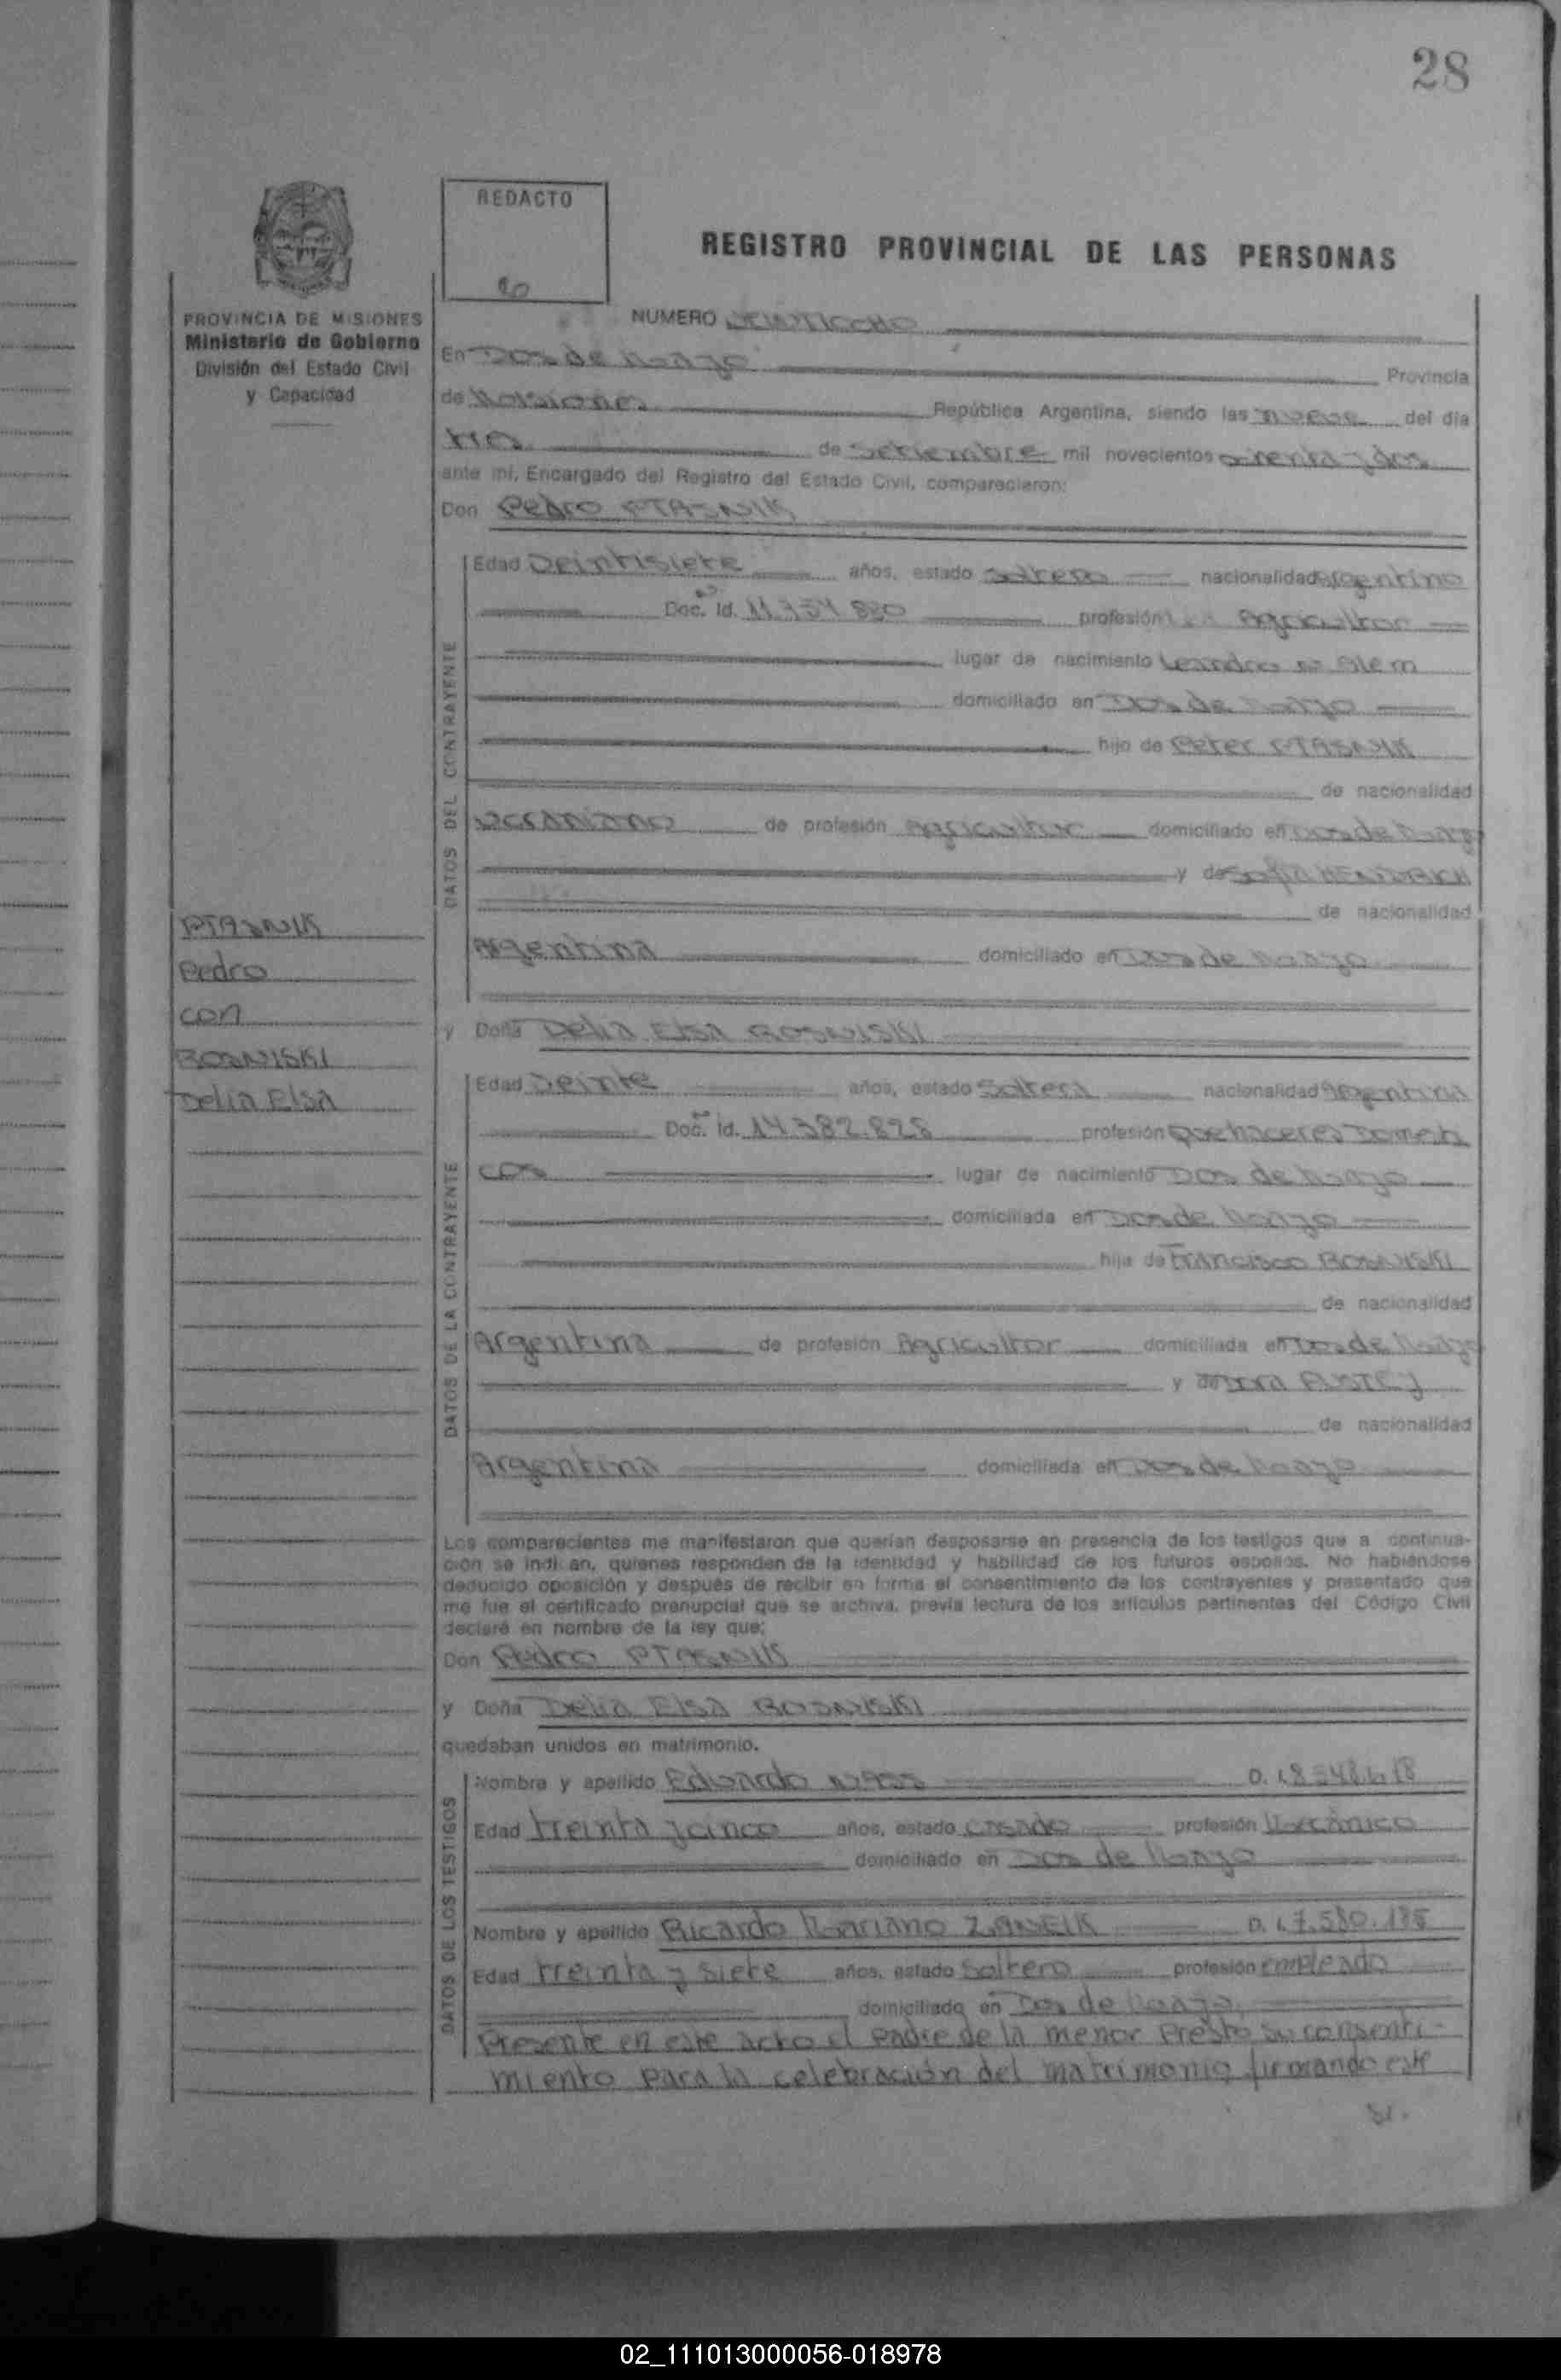 28
REDACTO
REGISTRO PROVINCIAL DE LAS PERSONAS
PROVINCIA DE MISIONES
Ministerio de Gobierno
División del Estado Civil
y Capacidad
NUMERO veintiocho
En Dos de Mayo Provincia
de Misiones República Argentina, siendo las nueve del día
tres de setiembre mil novecientos ochenta y dos
ante mi, Encargado del Registro del Estado Civil, comparecieron:
Don Pedro PTASNIK
Edad Veintisiete años, estado soltero nacionalidad Argentino
Doc. Id. profesión Agricultor
lugar de nacimiento Leandro N. Alem
domiciliado en Dos de Mayo
hijo de Peter PTASNIK
de nacionalidad
ucraniano de profesión Agricultor domiciliado en Dos de Mayo
y de Sofia
de nacionalidad
Argentina domiciliado en Dos de Mayo
PTASNIK
Pedro
con
ROSNISKI
Delia Elsa
y Doña Delia Elsa ROSNISKI
Edad Veinte años, estado Soltera nacionalidad Argentina
Doc. Id. 14.382.828 profesión Quehaceres Domesti
cos lugar de nacimiento Dos de Mayo
domiciliada en Dos de Mayo
hija de Francisco ROSNISKI
de nacionalidad
Argentina de profesión Agricultor domiciliada en Dos de Mayo
y
de nacionalidad
Argentina domiciliada en Dos de Mayo
Los comparecientes me manifestaron que querían desposarse en presencia de los testigos que a continua-
ción se indican, quienes responden de la identidad y habilidad de los futuros esposos. No habiéndose
deducido oposición y después de recibir en forma el consentimiento de los contrayentes y presentado que
me fue el certificado prenupcial que se archiva, previa lectura de los artículos pertinentes del Código Civil
declaré en nombre de la ley que:
Don Pedro PTASNIK
y Doña Delia Elsa ROSNISKI
quedaban unidos en matrimonio.
Nombre y apellido Eduardo D. I.
Edad treinta y cinco años, estado casado profesión Mecánico
domiciliado en Dos de Mayo
Nombre y apellido Ricardo Mariano D. I. 7.580.185
Edad treinta y siete años, estado Soltero profesión empleado
domiciliado en Dos de Mayo.
Presente en este acto el padre de la menor presto su consenti-
miento para la celebración del matrimonio firmando este
DATOS DEL CONTRAYENTE
DATOS DE LA CONTRAYENTE
DATOS DE LOS TESTIGOS
02_111013000056-018978